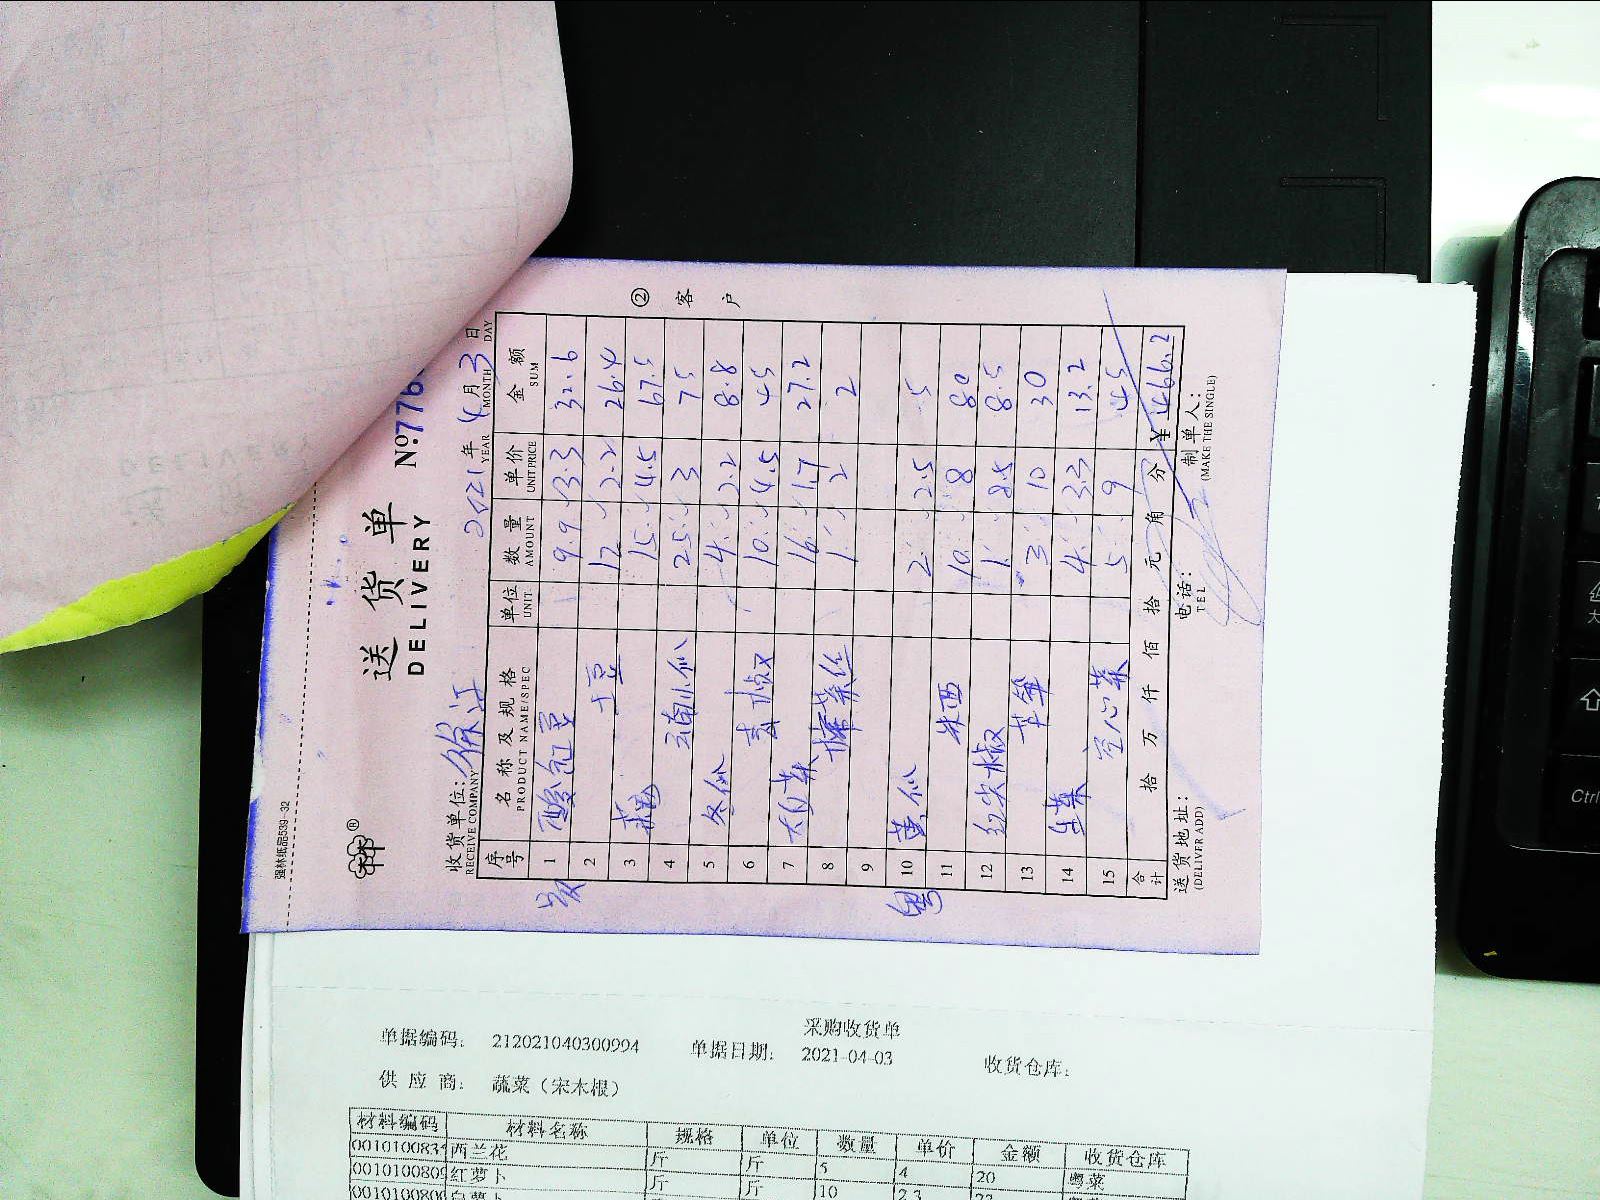 强林纸品539-32
送货单
DELIVERY
№776
收货单位:徐江
RECEIVE COMPANY
2021年4月3日
YEAR MONTH DAY
② 客户
序号 名称及规格 单位 数量 单价 金额
PRODUCT NAME/SPEC UNIT AMOUNT UNIT PRICE SUM
1 酸豇豆 9.9 3.3 32.6
2 土豆 12 2.2 26.4
3 15 4.5 67.5
4 云南小瓜 25 3 75
5 冬瓜 4 2.2 8.8
6 青椒 10 4.5 45
7 大白菜 16 1.7 27.2
8 榨菜丝 1 2 2
9
粤 10 黄瓜 2 2.5 5
11 10 8 80
12 红尖椒 1 8.5 8.5
13 3 10 30
14 生菜 4 3.3 13.2
15 空心菜 5 9 45
合计 拾 万 仟 佰 拾 元 角 分 ¥466.2
送货地址: 电话: 制单人:
(DELIVER ADD) TEL (MAKE THE SINGLE)
采购收货单
单据编码: 212021040300994 单据日期: 2021-04-03 收货仓库:
供应商: 蔬菜（宋木根）
材料编码 材料名称 规格 单位 数量 单价 金额 收货仓库
001010083 西兰花 斤 斤 5 4 20 粤菜
001010080 红萝卜 斤 斤 10 2.3